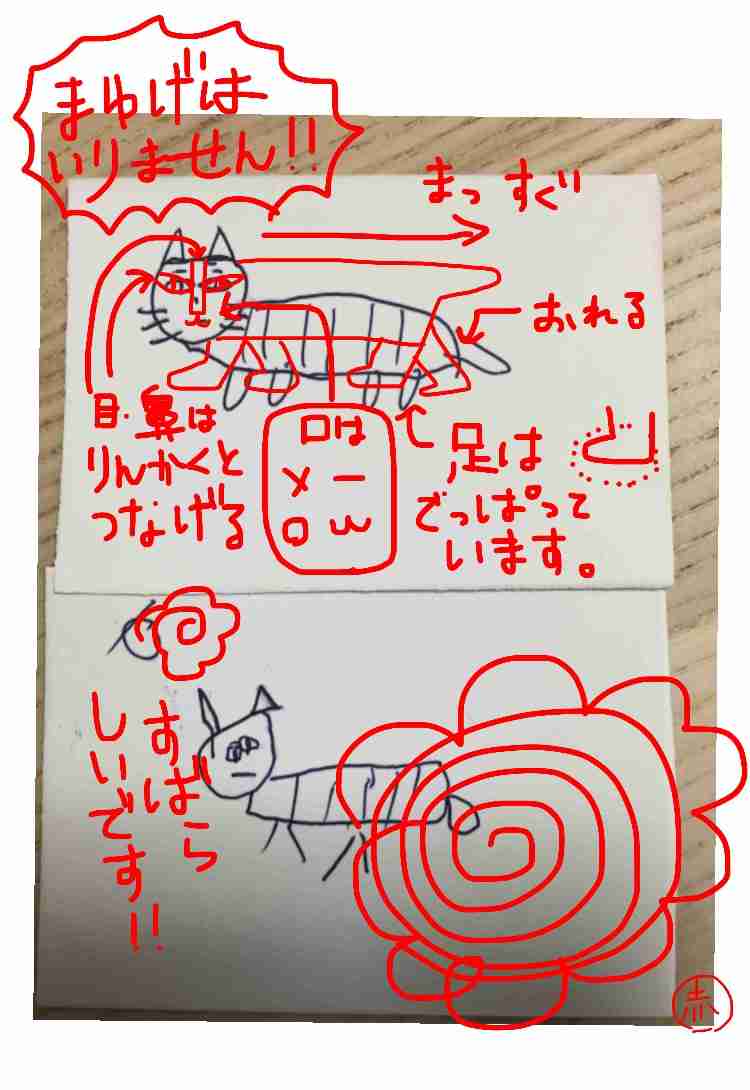 まゆげは
いりません!!
まっすぐ
おれる
目・鼻は
りんかくと
つなげる
口は
メー
ロw
足は
でっぱって
います。
すばら
しいです!!
赤